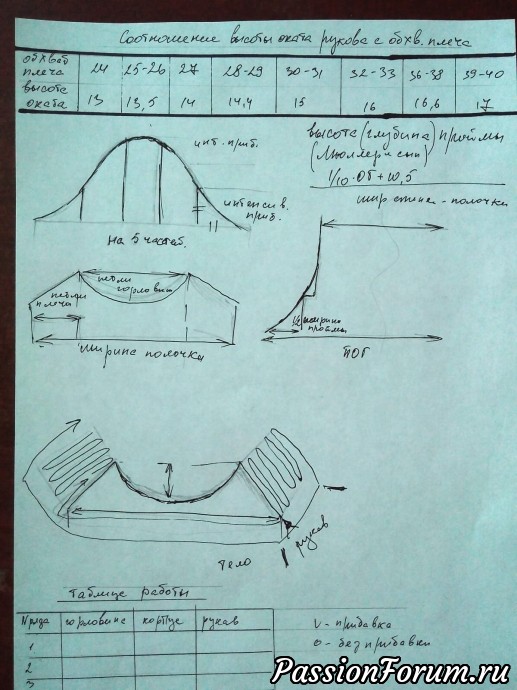 Соотношение высоты оката рукава с обхв. плеча
обхват плеча 24 25-26 27 28-29 30-31 32-33 36-38 39-40
высота оката 13 13,5 14 14,4 15 16 16,6 17
инт. приб.
высота (глубина) проймы
(Мюллер и сын)
1/10·Ог + 10,5
интенсив. приб.
шир спинки - полочки
на 5 частей.
петли горловины
петли плеча
1/2 ширина проймы
ширина полочки
ПОГ
рукав
тело
таблице работы
N ряда горловине корпус рукав
1
2
3
V - прибавка
о - без прибавки
PassionForum.ru